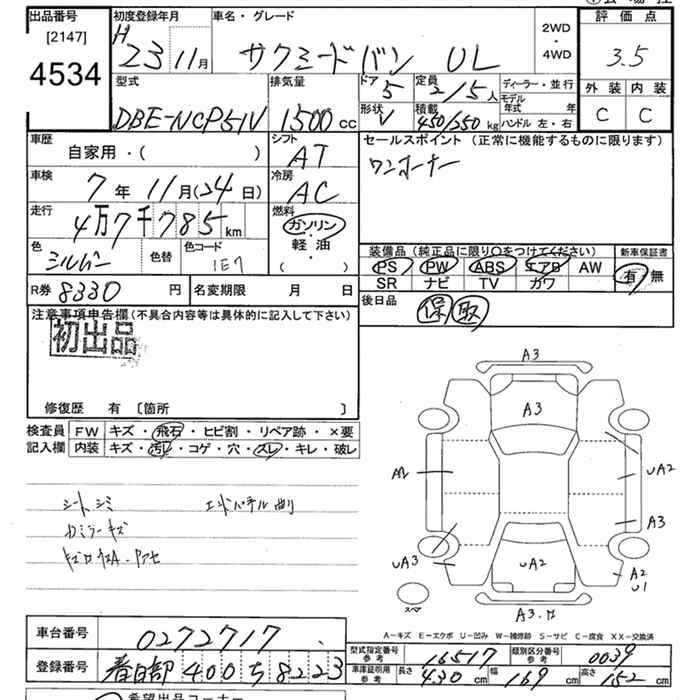 出品番号
[2147]
4534
初度登録年月
H 23 11月
車名・グレード
サクシードバン UL
2WD
・
4WD
評価点
3.5
外装 内装
C C
型式
DBE-NCP51V
排気量
1500cc
ドア 5
定員 2/5人
形状 V
積載 450/250kg
ディーラー・並行
モデル年式 年
ハンドル 左・右
車歴
自家用・( )
シフト
AT
セールスポイント(正常に機能するものに限ります)
ワンオーナー
車検
7年11月(24日)
冷房
AC
走行
4万7千785km
燃料
ガソリン
・
軽油
・
( )
色
シルバー
色替
色コード
1E7
装備品(純正品に限り○をつけてください)
PS PW ABS エアB AW
SR ナビ TV カワ
新車保証書
有 無
R券 8330円
名変期限 月 日
後日品
保 取
注意事項申告欄(不具合内容等は具体的に記入して下さい)
初出品
修復歴 有 〔箇所 〕
検査員
記入欄
FW キズ・飛石・ヒビ割・リペア跡・×要
内装 キズ・汚レ・コゲ・穴・スレ・キレ・破レ
シートシミ
エンドパネル曲り
カミラーキズ
A3
A3
A2
UA2
A3
UA3
UA2
A2
U1
スペア
A3.
A-キズ E-エクボ U-凹み W-補修跡 S-サビ C-腐食 XX-交換済
車台番号
0272717
登録番号
春日部 400 ち 8223
型式指定番号
参考
16517
類別区分番号
参考
0039
車庫証明用
参考
長さ 430cm
幅 169cm
高さ 152cm
希望出品コーナー